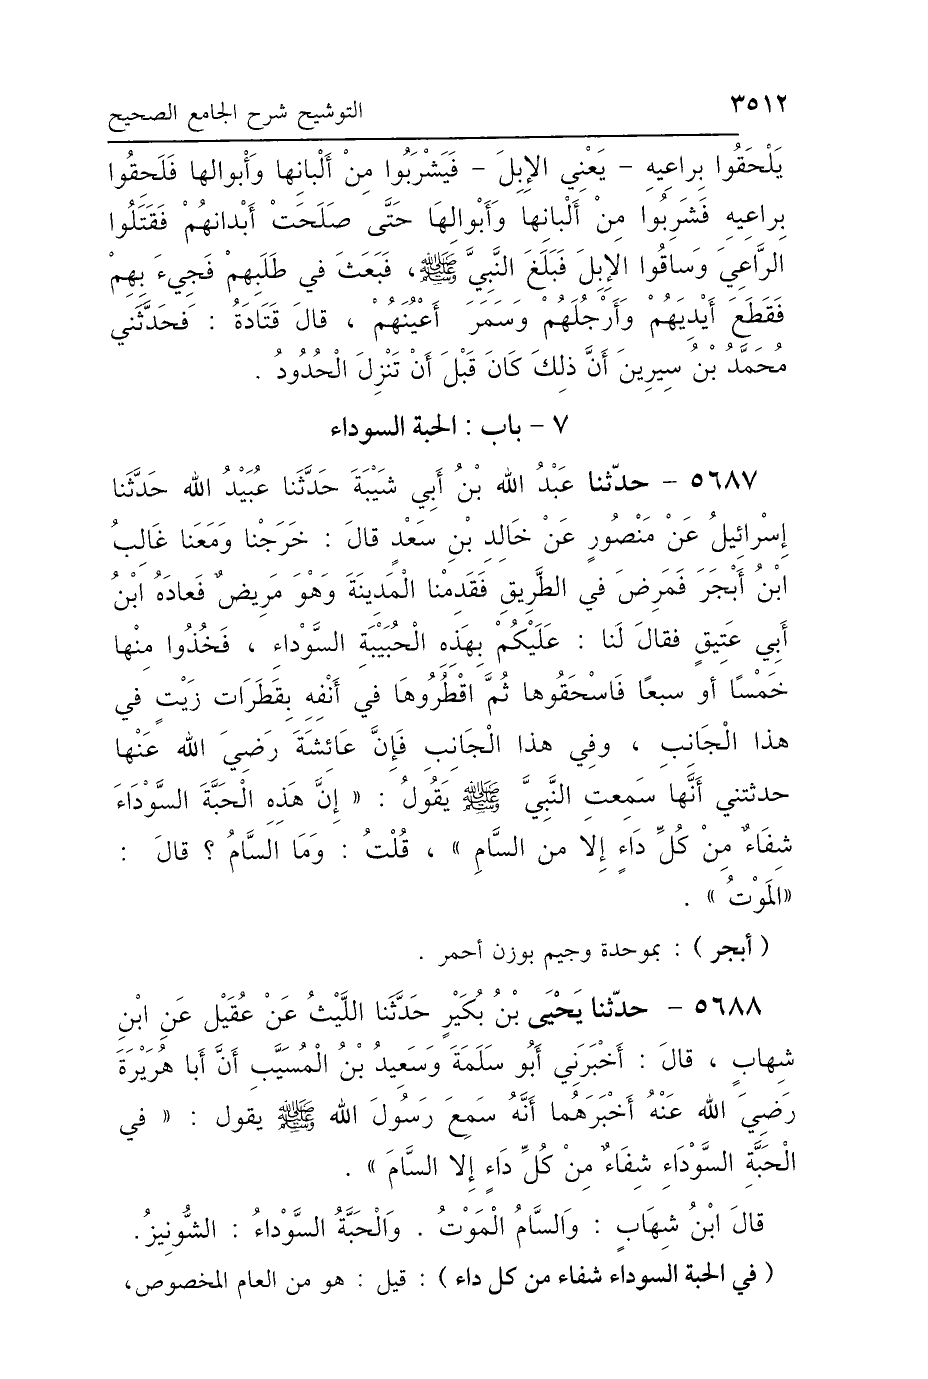 ٣٥١٢ التوشيح شرح الجامع الصحيح
يَلْحَقُوا بِراعِيهِ – يَعْنِي الإِبِلَ – فَيَشْرَبُوا مِنْ أَلْبانِها وَأَبْوالها فَلَحِقُوا
بِراعِيهِ فَشَرِبُوا مِنْ أَلْبانِها وَأَبْوالِهَا حَتَّى صَلَحَتْ أَبْدانُهُمْ فَقَتَلُوا
الرَّاعِيَ وَساقُوا الإِبِلَ فَبَلَغَ النَّبِيَّ ﷺ، فَبَعَثَ في طَلَبِهِمْ فَجِيءَ بِهِمْ
فَقَطَعَ أَيْدِيَهُمْ وَأَرْجُلَهُمْ وَسَمَرَ أَعْيُنَهُمْ ، قالَ قَتَادَةُ : فَحَدَّثَنِي
مُحَمَّدُ بْنُ سِيرِينَ أَنَّ ذلِكَ كَانَ قَبْلَ أَنْ تَنْزِلَ الْحُدُودُ .
٧ – باب : الحبة السوداء
٥٦٨٧ – حدّثنا عَبْدُ الله بْنُ أَبِي شَيْبَةَ حَدَّثَنا عُبَيْدُ الله حَدَّثَنا
إِسْرائِيلُ عَنْ مَنْصُورٍ عَنْ خالِدِ بْنِ سَعْدٍ قالَ : خَرَجْنا وَمَعَنا غَالِبُ
ابْنُ أَبْجَرَ فَمَرِضَ في الطَّرِيقِ فَقَدِمْنا الْمَدِينَةَ وَهْوَ مَرِيضٌ فَعادَهُ ابْنُ
أَبي عَتِيقٍ فقالَ لَنا : عَلَيْكُمْ بِهَذِهِ الْحُبَيْبَةِ السَّوْداءِ ، فَخُذُوا مِنْها
خَمْسًا أو سبعًا فَاسْحَقُوها ثُمَّ اقْطُرُوهَا في أَنْفِهِ بِقَطَرَات زَيْتٍ في
هذا الْجَانِبِ ، وفي هذا الْجَانِبِ فَإِنَّ عَائِشَةَ رَضِيَ الله عَنْها
حدثتني أَنَّها سَمِعت النَّبِيَّ ﷺ يَقُولُ : « إِنَّ هَذِهِ الْحَبَّةَ السَّوْدَاءَ
شِفَاءٌ مِنْ كُلِّ دَاءٍ إِلا من السَّامِ » ، قُلْتُ : وَمَا السَّامُ ؟ قالَ :
«المَوْتُ » .
( أبجر ) : بموحدة وجيم بوزن أحمر .
٥٦٨٨ – حدّثنا يَحْيَى بْنُ بُكَيْرٍ حَدَّثَنا اللَّيْثُ عَنْ عُقَيْلٍ عَنِ ابْنِ
شِهابٍ ، قالَ : أَخْبَرَنِي أَبُو سَلَمَةَ وَسَعِيدُ بْنُ الْمُسَيَّبِ أَنَّ أَبا هُرَيْرَةَ
رَضِيَ الله عَنْهُ أَخْبَرَهُما أَنَّهُ سَمِعَ رَسُولَ الله ﷺ يقول : « في
الْحَبَّةِ السَّوْدَاءِ شِفَاءٌ مِنْ كُلِّ دَاءٍ إِلا السَّامَ » .
قالَ ابْنُ شِهَابٍ : وَالسَّامُ الْمَوْتُ . وَالْحَبَّةُ السَّوْداءُ : الشُّونِيزُ .
( في الحبة السوداء شفاء من كل داء ) : قيل : هو من العام المخصوص،